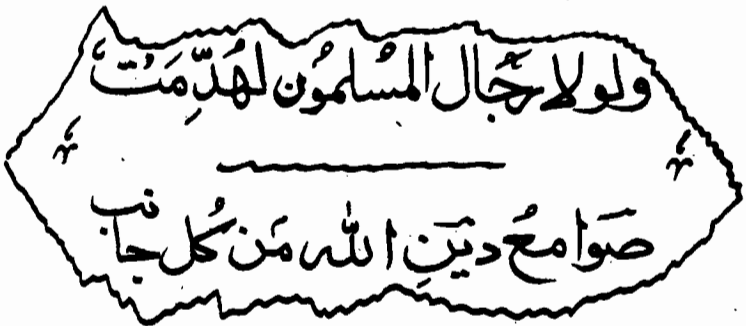 ولولا رجَال المُسلمُون لهُدِّمَتْ
صَوامعُ ديَنِ الله مَن كُل جانب